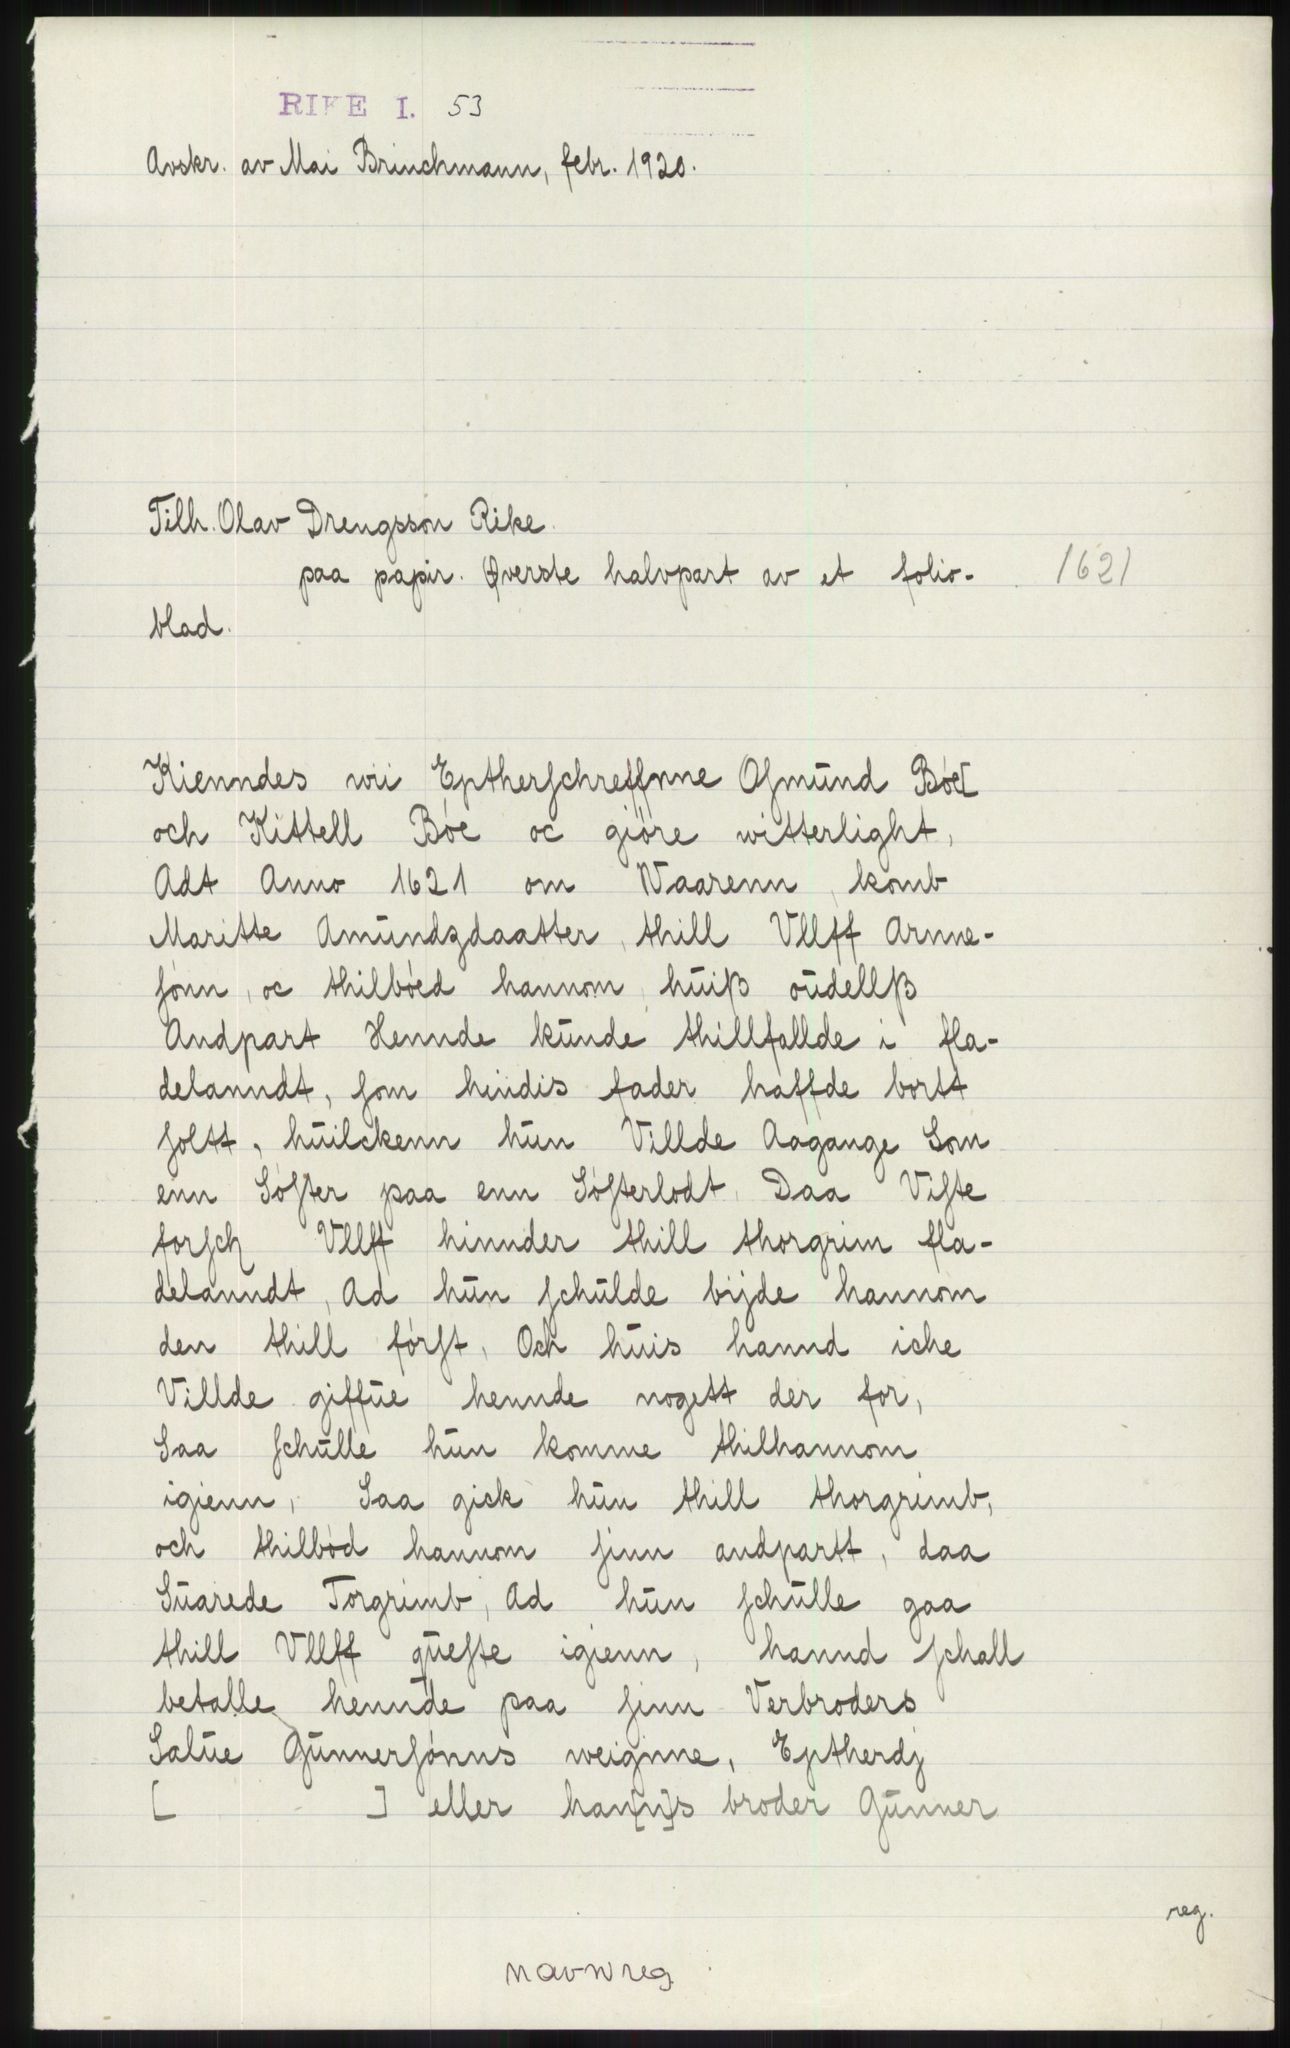 RIKE I. 53
Avskr. av Mai Brinchmann, febr. 1920.
Tilh. Olav Drengsson Rike.
paa papir. Øverste halvpart av et folio-
1621
blad.
Kienndes wii Eptherſchreffnne Oſmŭnd Bóe[
och Kittell Bóe oc gióre witterlight,
Adt Anno 1621 om Waarenn, komb
Maritte Amŭndzdaatter, thill Vllff Arnne-
ſónn, oc thilbóed hannom, hŭiß oŭdellß
Andpart Hennde kŭnde thillfallde i fla-
delanndt, ſom hindis fader haffde bortt
ſoltt, hŭilckenn hŭn Villde Aagange Som
enn Sóſter paa enn Sóſterlodt, Daa Viſte
forſch Vllff hinnder thill thorgrim fla-
delanndt, Ad hŭn ſchŭlde bijde hannom
den thill fórſt, Och hŭis hannd iche
Villde giffŭe hennde nogett der for,
Saa ſchŭlle hŭn komme thilhannom
igienn, Saa gick hŭn thill thorgrimb,
och thilbód hannom ſinn andpartt, daa
Sŭarede Torgrimb, Ad hŭn ſchŭlle gaa
thill Vllff qŭeſte igienn, hannd ſchall
betalle hennde paa ſinn Verbroders
Salŭe Gŭnnerſónns weignne, Eptherdj
[ ] eller han[n]s broder Gŭnner
reg.
navnreg